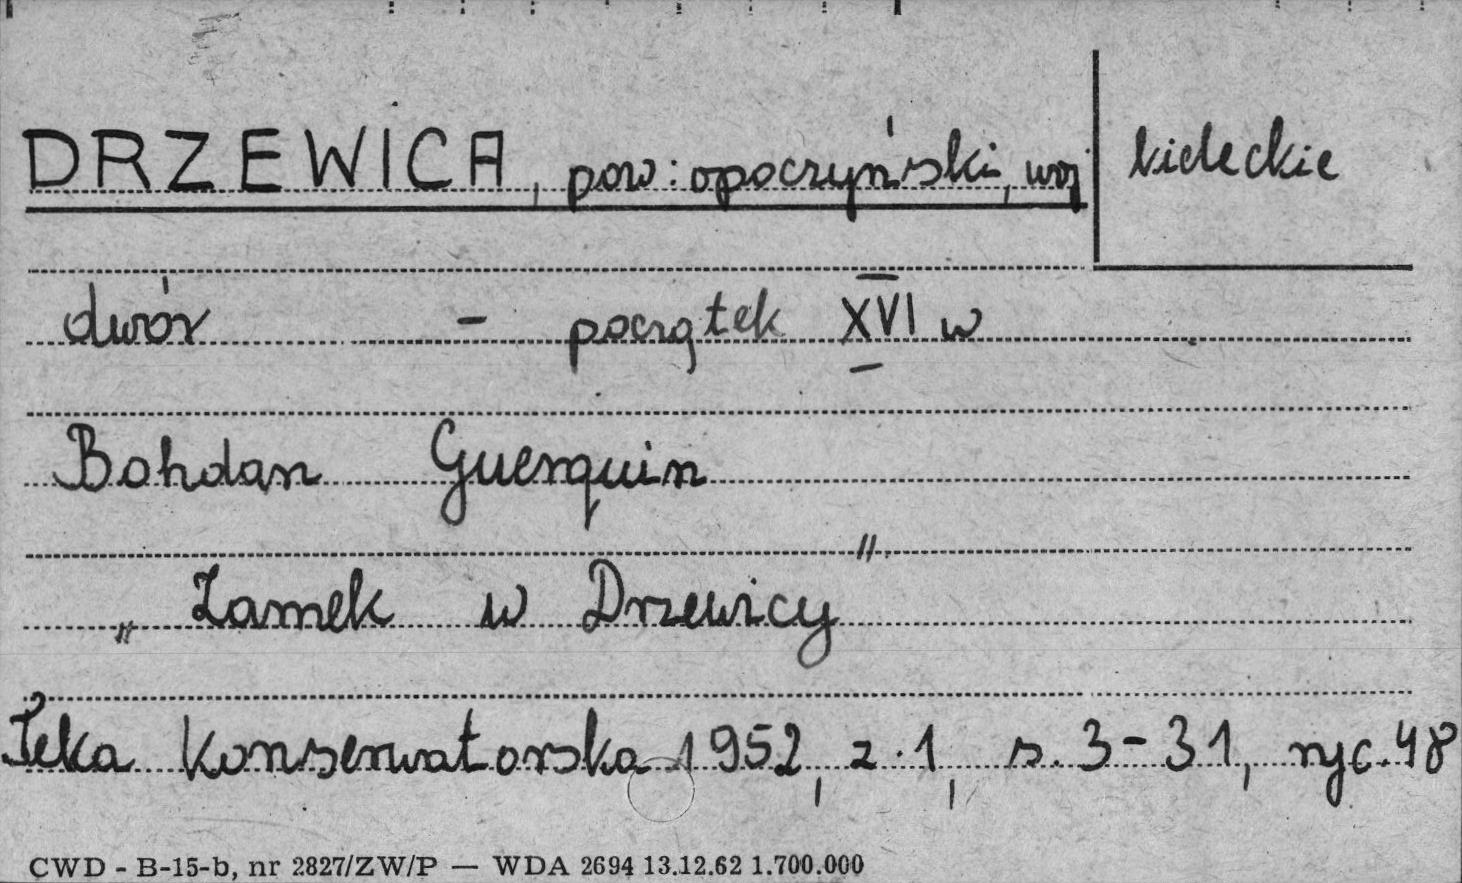 DRZEWICA, pow: opoczyński, woj kieleckie
dwór - początek XVI w
Bohdan Guerquin
„Zamek w Drzewicy"
Teka Konserwatorska 1952, z. 1, s. 3-31, ryc. 48
CWD - B-15-b, nr 2827/ZW/P — WDA 2694 13.12.62 1.700.000